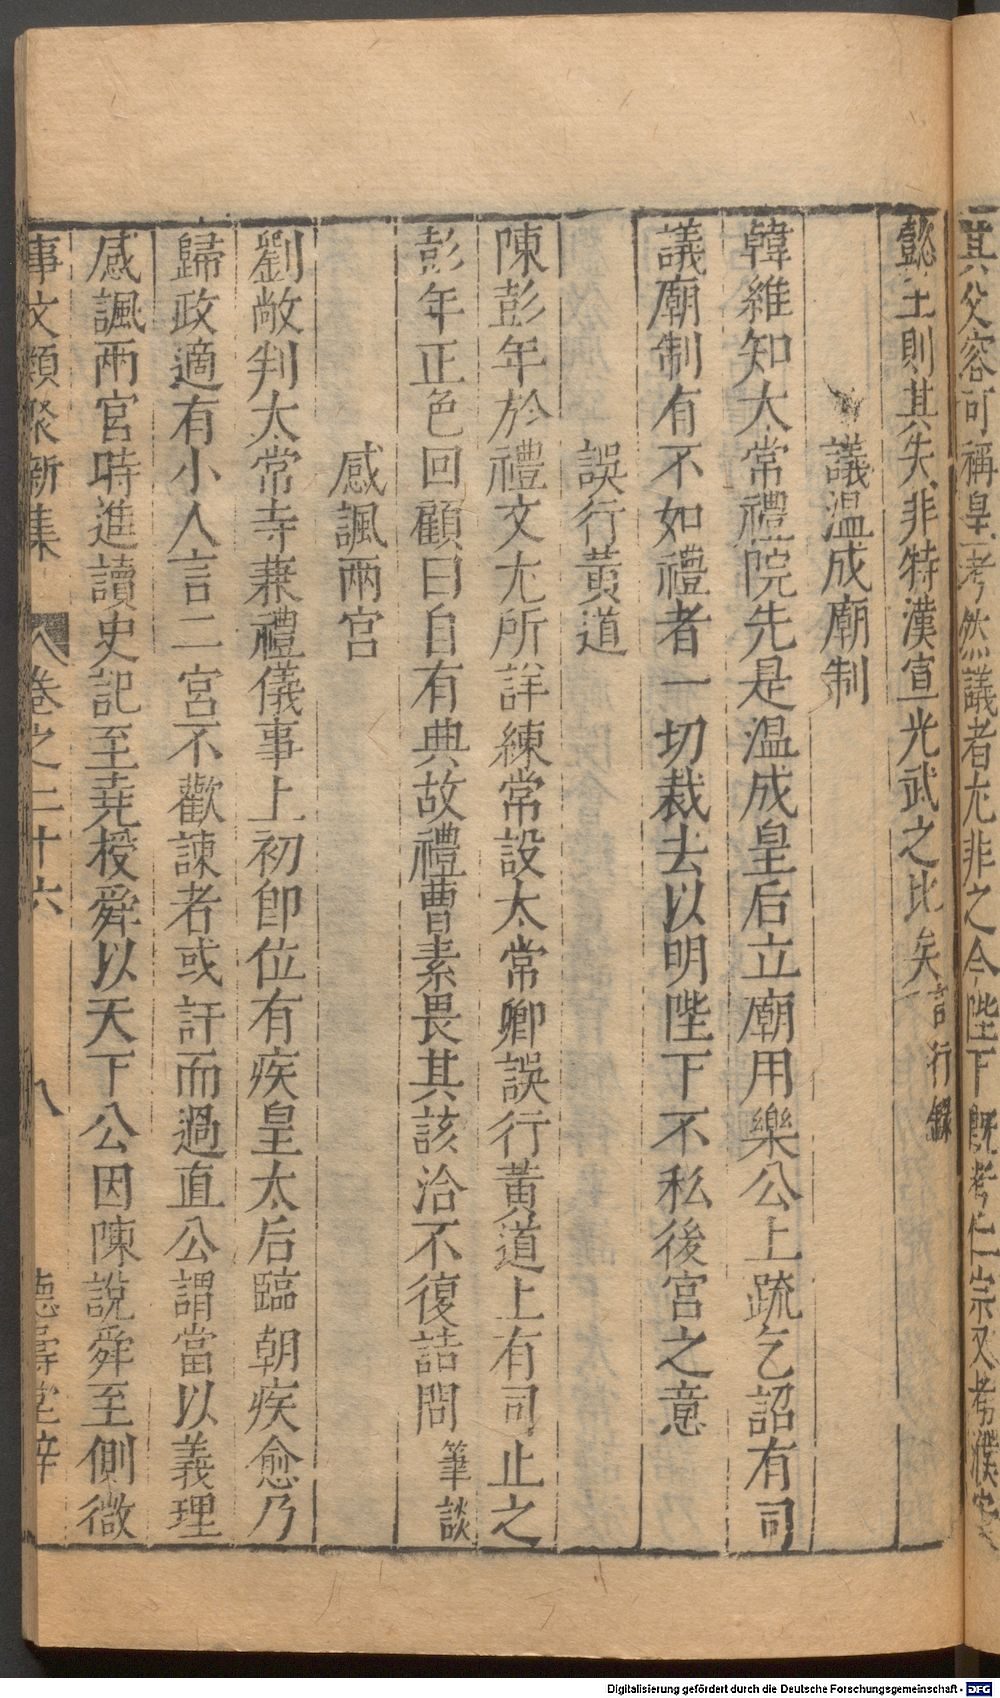 其父容可稱皇考然議者尤非之今陛下既考仁宗又考濮安
懿王則其失非特漢宣光武之比矣言行錄
議温成廟制
韓維知太常禮院先是温成皇后立廟用樂公上疏乞詔有司
議廟制有不如禮者一切裁去以明陛下不私後宮之意
誤行黄道
陳彭年於禮文尤所詳練常設太常卿誤行黄道上有司止之
彭年正色回顧曰自有典故禮曹素畏其該洽不復詰問筆談
感諷兩宮
劉敞判太常寺兼禮儀事上初即位有疾皇太后臨朝疾愈乃
歸政適有小人言二宮不歡諫者或訐而過直公謂當以義理
感諷兩宮時進讀史記至堯授舜以天下公因陳說舜至側微
事文類聚新集 卷之二十六 八 德壽堂梓
Digitalisierung gefördert durch die Deutsche Forschungsgemeinschaft - DFG